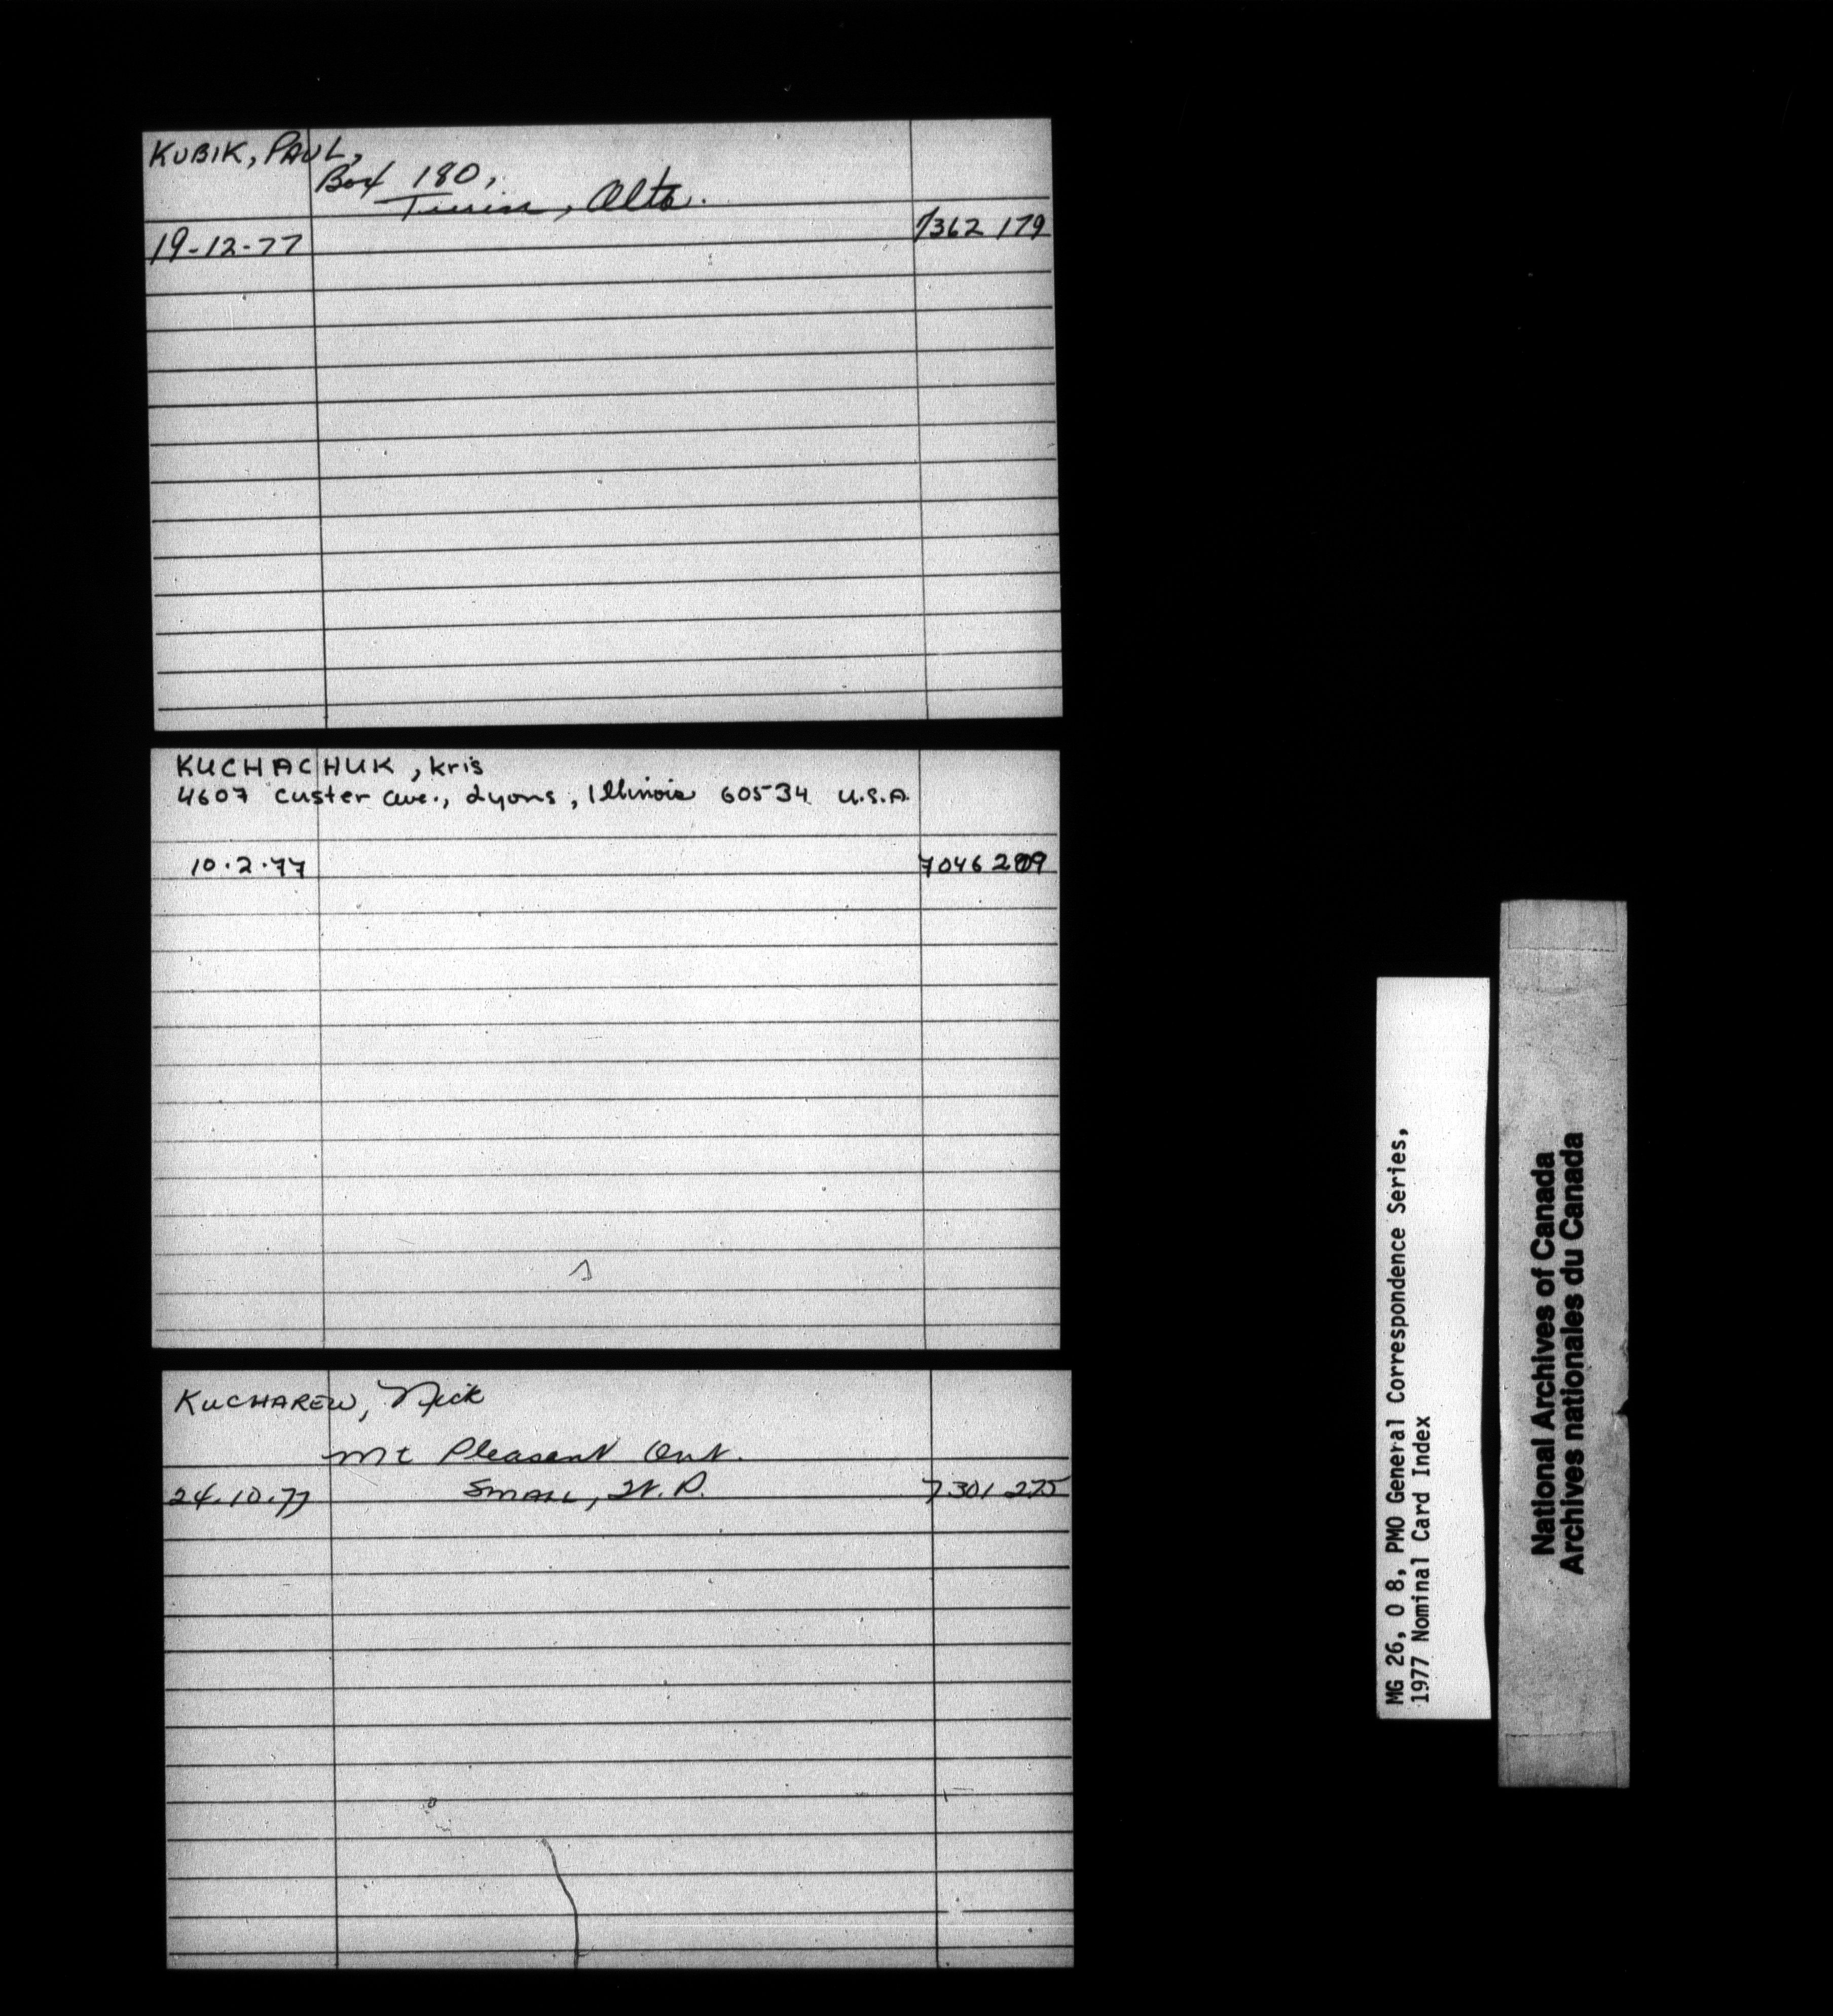 KUBIK, PAUL,
Box 180,
Turin, Alta.
19-12-77 7362 179
KUCHACHUK, Kris
4607 Custer Ave., Lyons, Illinois 60534 U.S.A.
10.2.77 7046
KUCHAREW, Nick
Mt Pleasant Ont.
24.10.77 SMALL, 7301 275
MG 26, O 8, PMO General Correspondence Series,
1977 Nominal Card Index
National Archives of Canada
Archives nationales du Canada